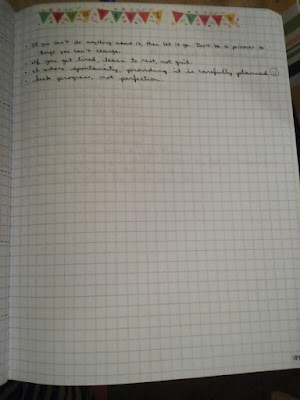 • If you can't do anything about it, then let it go. Don't be a prisoner to
things you can't change.
• If you get tired, learn to rest, not quit.
• I adore spontaneity, providing it is carefully planned
• Seek progress, not perfection.